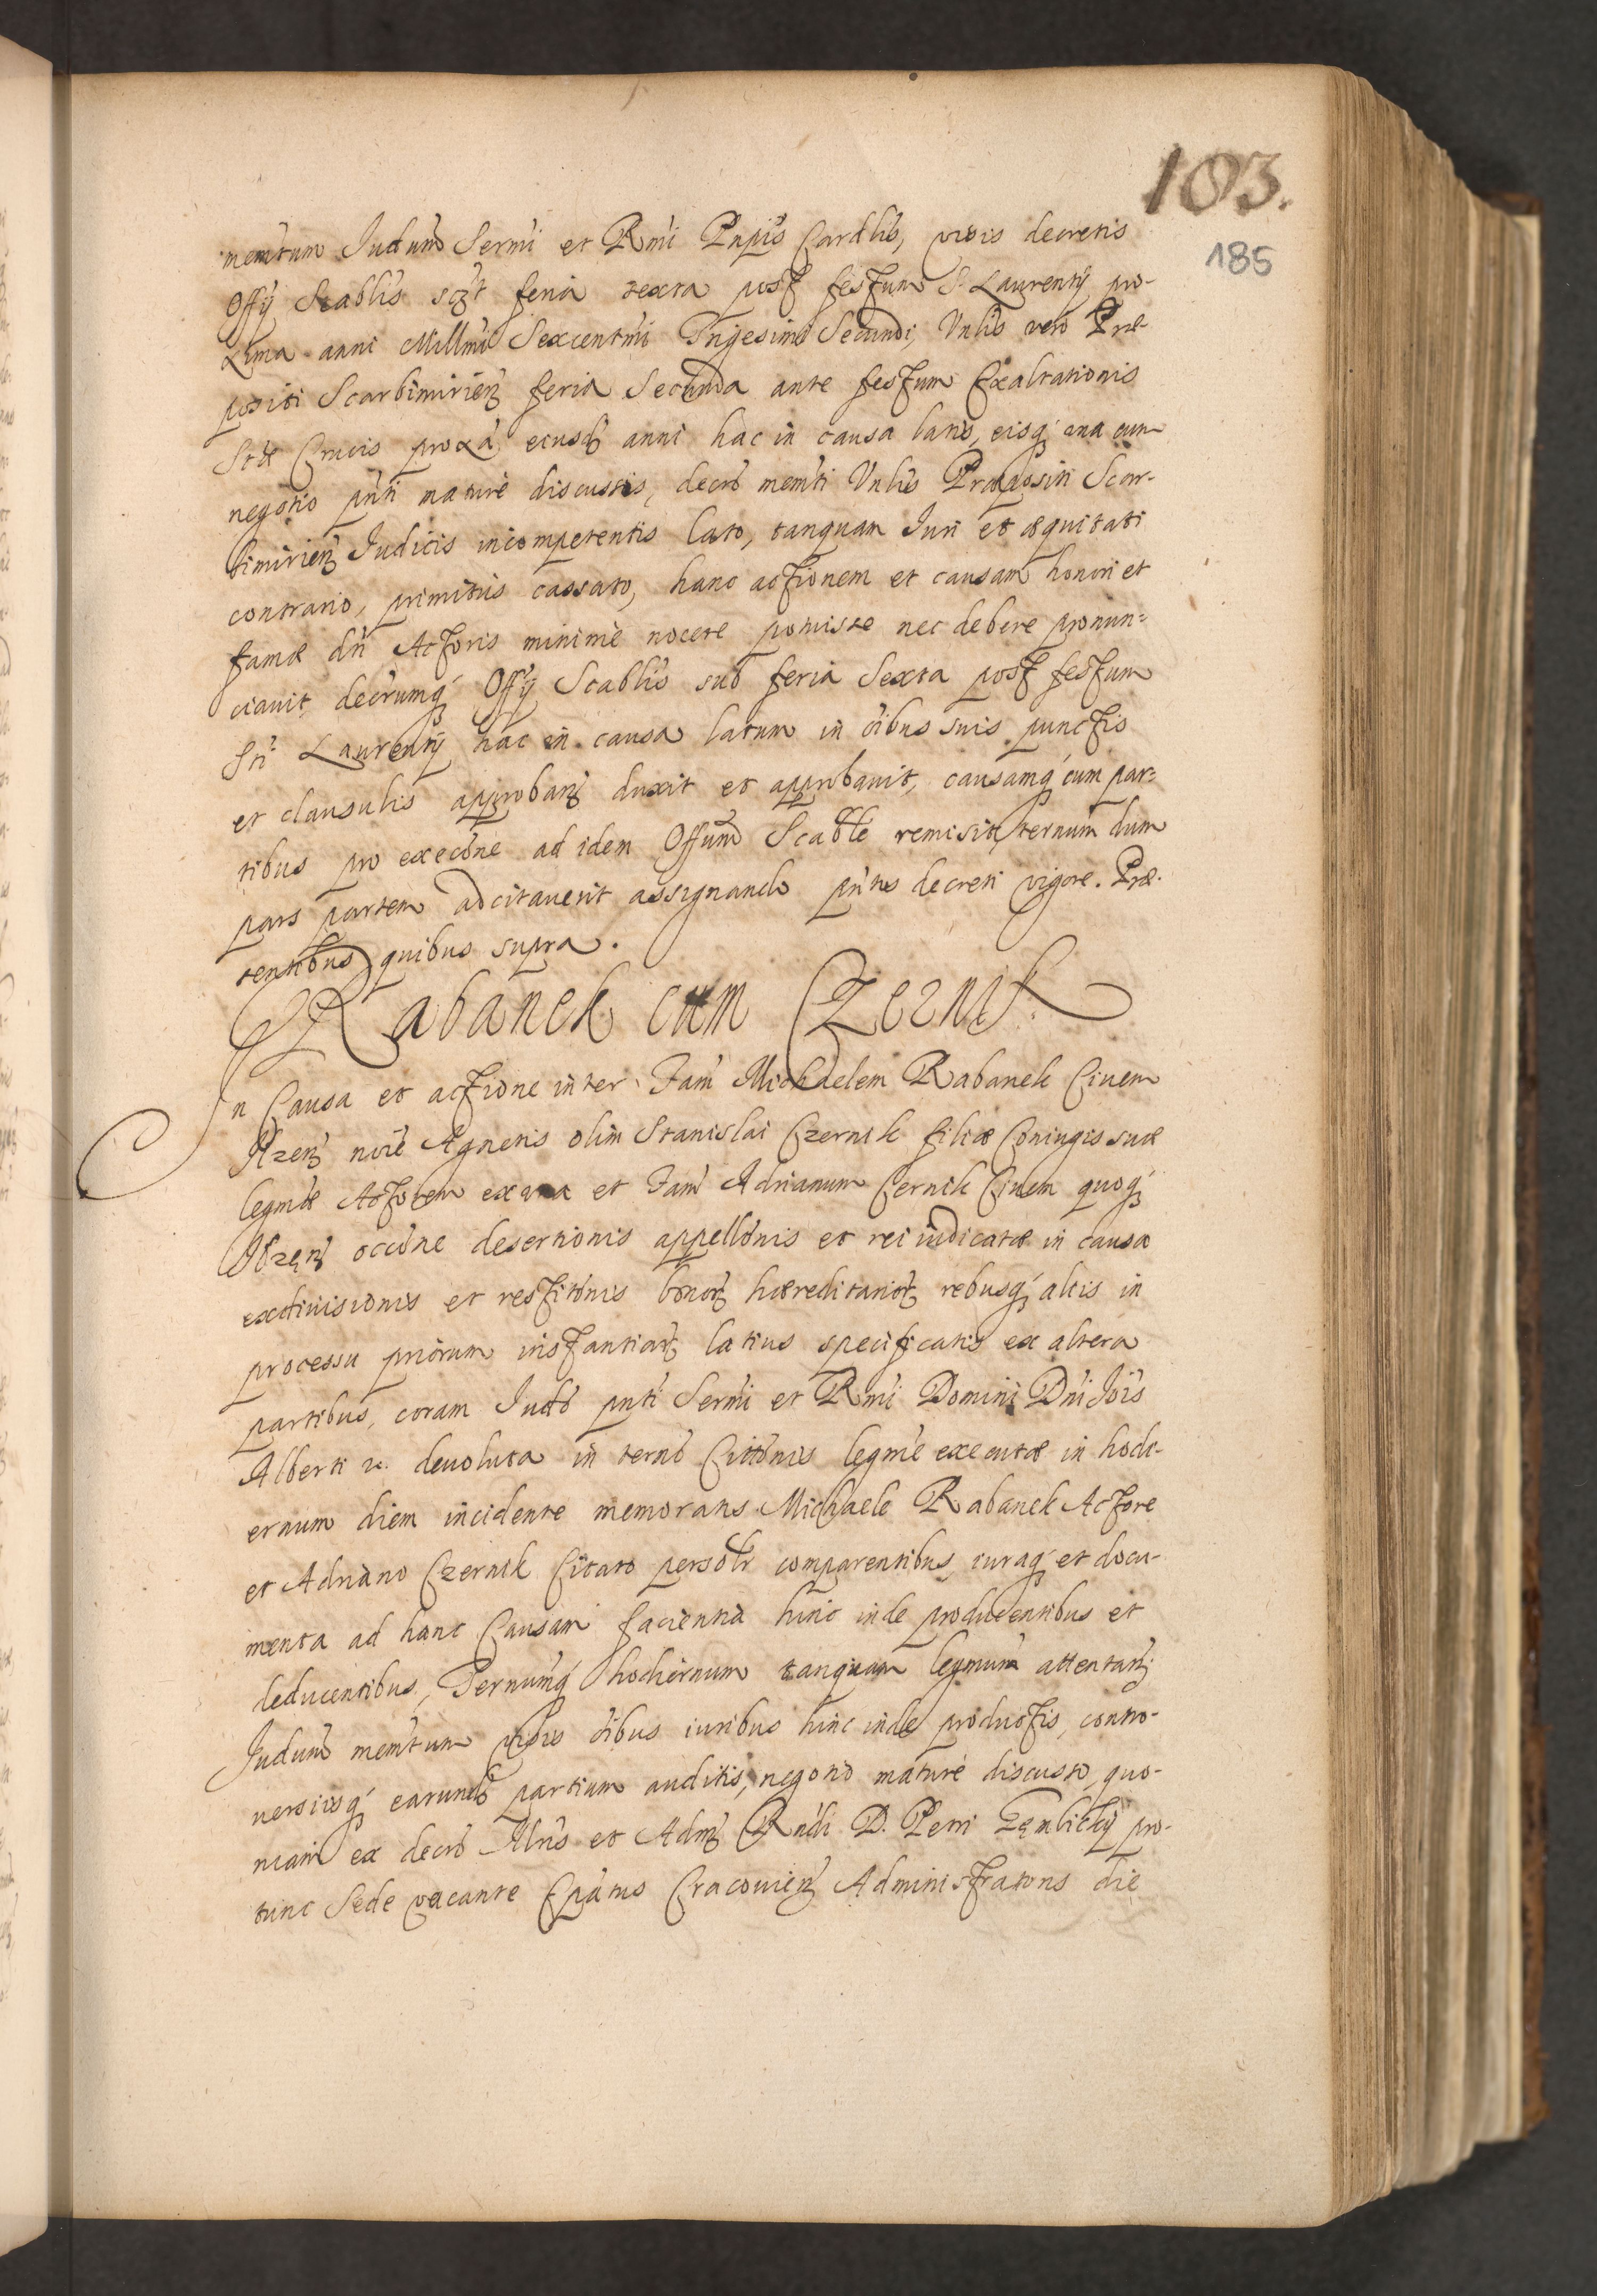 103.
185
memtum Judum Sermi et Rmi Pnpis Cardlis, visis decretis
Offij Scablis sczt feria sexta post festum S. Laurentij pro-
xima anni Millmi Sexcentmi Trigesimi Secundi, Vnlis vero Præ-
positi Scarbimirien feria Secunda ante festum Exaltationis
Stæ Crucis proxa eiusd anni hac in causa latis, eisq una cum
negotio pnti mature discussis, decro memti Vnlis Præpositi Scar-
bimirien Judicis incompetentis lato, tanquam Juri et æquitati
contrario, primitus cassato, hanc actionem et causam honori et
famæ dni Actoris minimè nocere potuisse nec debere pronun-
ciauit, decrumq Offij Scablis sub feria Sexta post festum
Sti Laurentij hac in causa latum in oibus suis punctis
et clausulis approban duxit et approbauit, causamq cum par-
tibus pro execone ad idem Offum Scable remisit, ternum dum
pars partem adcitauerit assignando pntis decreti vigore. Præ-
sentibus quibus supra.
Rabanek cum Czernik
In Causa et actione inter Fam Michaelem Rabanek Ciuem
Ilzen noie Agnetis olim Stanislai Czernik filiæ Coniugis suæ
legmæ Actorem ex una et Fam Adrianum Cernik Ciuem quoq
Ilzen occone desertionis appellonis et rei iudicatæ in causa
exdiuisionis et restitonis bonor hæreditarior rebusq alijs in
processu priorum instantiar latius specificatis ex altera
partibus, coram Judo pnti Sermi et Rmi Domini Dni Jois
Alberti etc. deuoluta in terno Cittonis legme executæ in hodi-
ernum diem incidente memoratis Michaele Rabanek Actore
et Adriano Czernik Citato persolr comparentibus, iuraq et docu-
menta ad hanc Causam facientia hinc inde producentibus et
deducentibus, Ternumq hodiernum tanquam legmum attentan
Judum memtum visis oibus iuribus hinc inde productis, contro-
uersiisq earund partium auditis, negotio maturè discusso, quo-
niam ex decro Illris et Adm Rndi D. Petri Gęmbicky pro-
tunc Sede vacante Epatus Cracouien Administratoris die